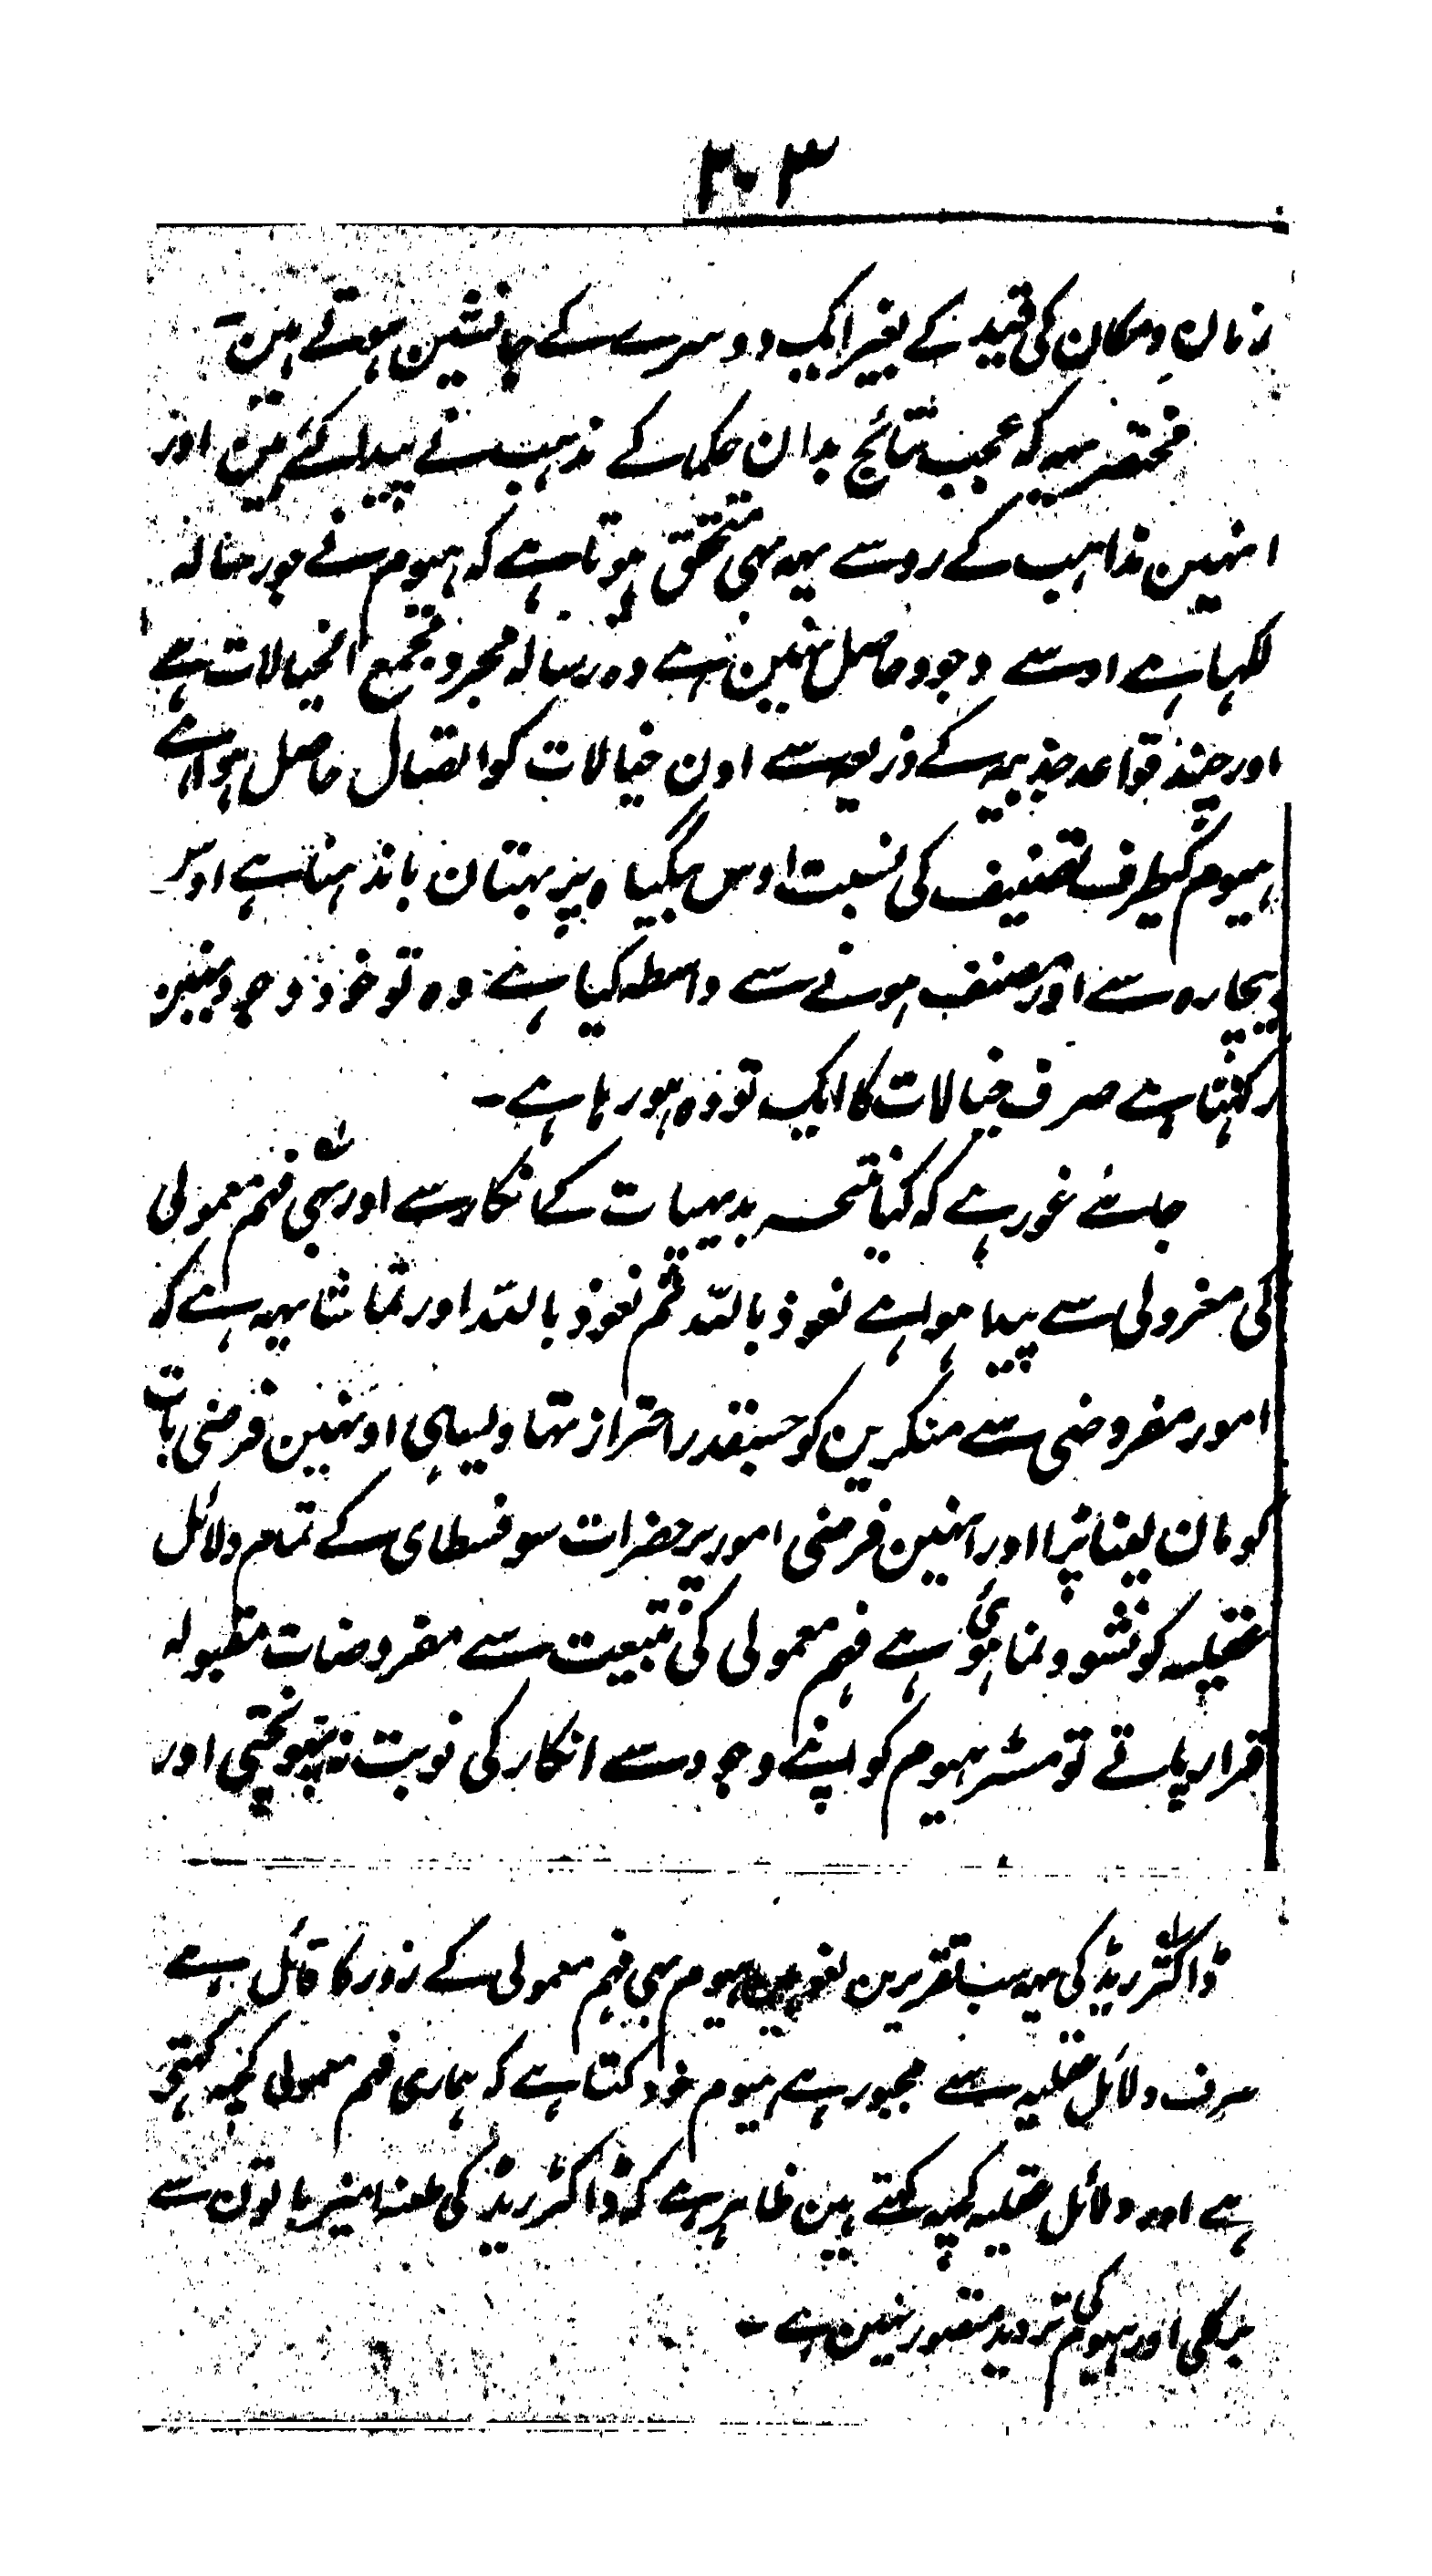 ۲۰۳
زمان و مکان کی قید کے بغیر ایک دوسرے کے جانشین ہوتے ہین۔
مختصر یہہ کہ عجب نتائج بد ان حکما کے مذہب نے پیدا کئے ہین اور
انہین مذاہب کے روسے یہہ بہی متحقق ہوتا ہے کہ ہیوم نے جو رسالہ
لکہا ہے اوسے وجود حاصل نہین ہے وہ رسالہ مجرد مجمع الخیالات ہے
اور چند قواعد جذبیہ کے ذریعہ سے اون خیالات کو اتصال حاصل ہوا ہے
ہیوم کیطرف تصنیف کی نسبت اوس بیگیاہ پر بہتان باندہنا ہے اوس
بیچارہ سے اور مصنف ہونے سے واسطہ کیا ہے وہ تو خود وجود نہین
رکہتا ہے صرف خیالات کا ایک تودہ ہو رہا ہے۔
جاے غور ہے کہ کیا نتیجہ بدیہیات کے انکار سے اور سچی فہم معمولی
کی معزولی سے پیدا ہوا ہے نعوذ باللہ ثم نعوذ باللہ اور تماشا یہہ ہے کہ
امور مفروضی سے منکرین کو جسقدر احتراز تہا ویسا ہی اونہین فرضی بات
کو مان لینا پڑا اور انہین فرضی امور پر حضرات سوفسطای کے تمام دلائل
عقلیہ کو نشو و نما ہوئی ہے فہم معمولی کی تبعیت سے مفروضات مقبولہ
قرار پاتے تو مسٹر ہیوم کو اپنے وجود سے انکار کی نوبت نہ پہونچتی اور
ڈاکٹر ریڈ کی یہہ سب تقریرین لغو ہین ہیوم بہی فہم معمولی کے زور کا قائل ہے
صرف دلائل عقلیہ سے مجبور ہے ہیوم خود کہتا ہے کہ ہماری فہم معمولی کچہہ کہتی
ہے اور دلائل عقلیہ کچہہ کہتے ہین ظاہر ہے کہ ڈاکٹر ریڈ کی طعنہ امیز باتون سے
برکلی اور ہیوم کی تردید متصور نہین ہے۔